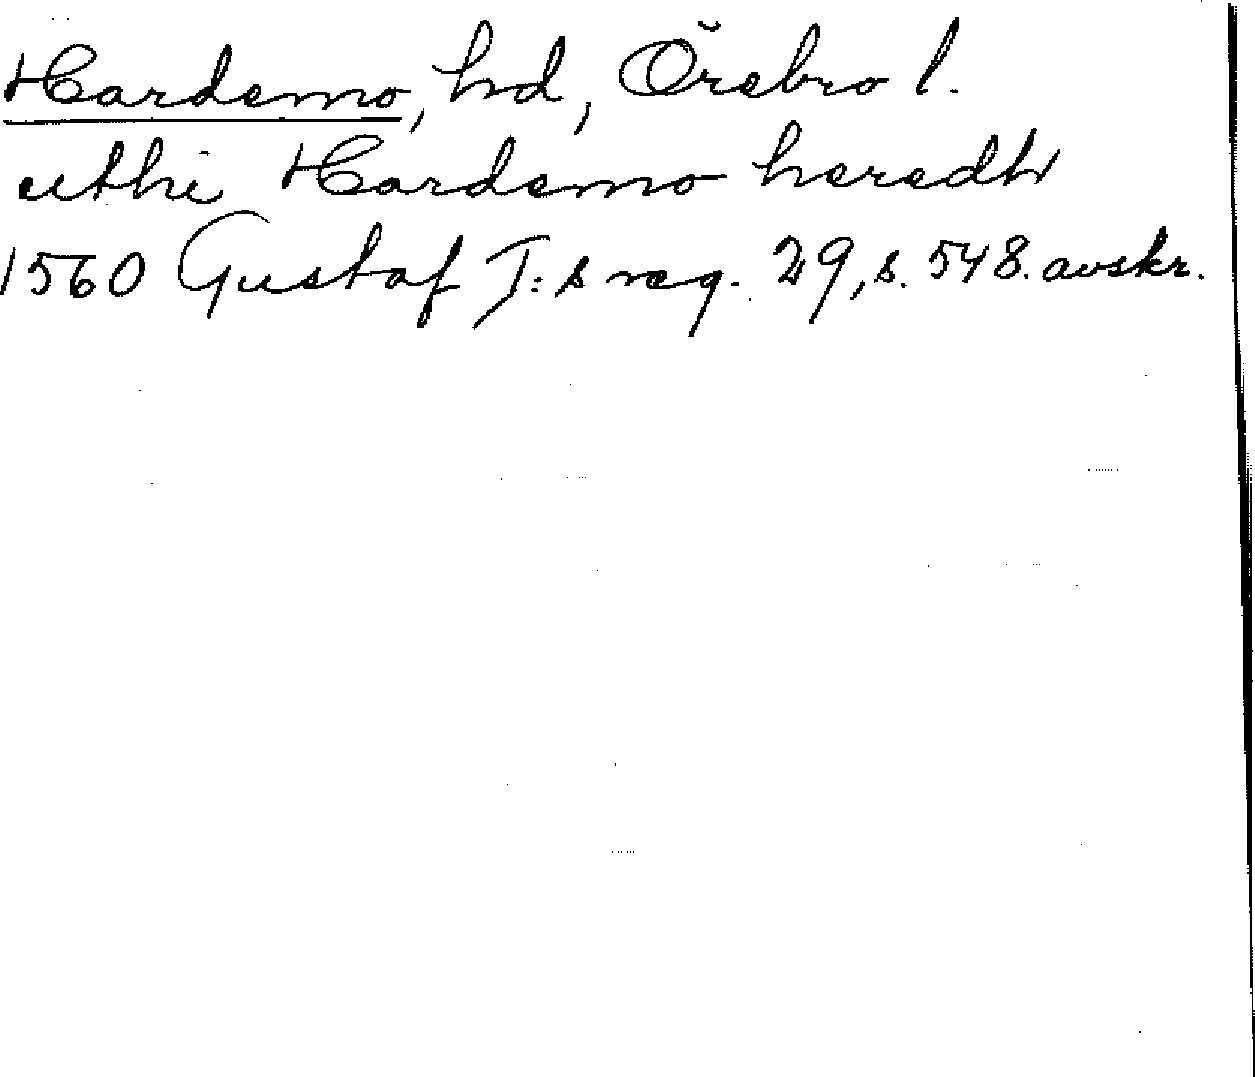 Hardemo, hd, Örebro l.
uthi Hardemo heredh
1560 Gustaf I:s reg. 29, s. 548. avskr.